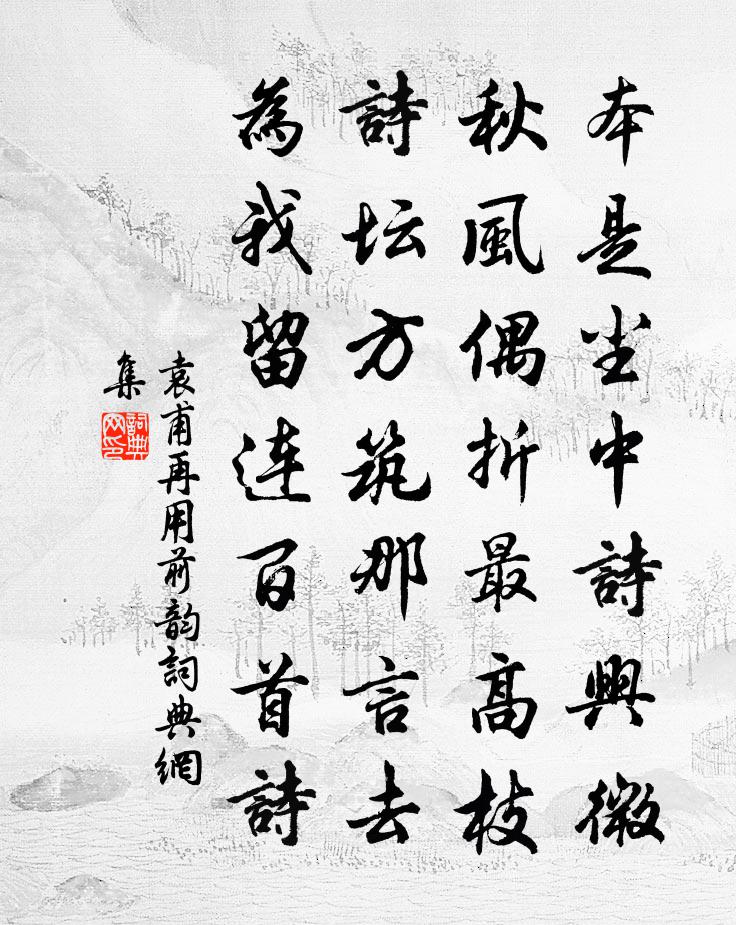 本是尘中詩興微
秋風偶折最高枝
詩坛方筑那言去
為我留連百首詩
袁甫再用前韵詞典網
集
詞典
网印